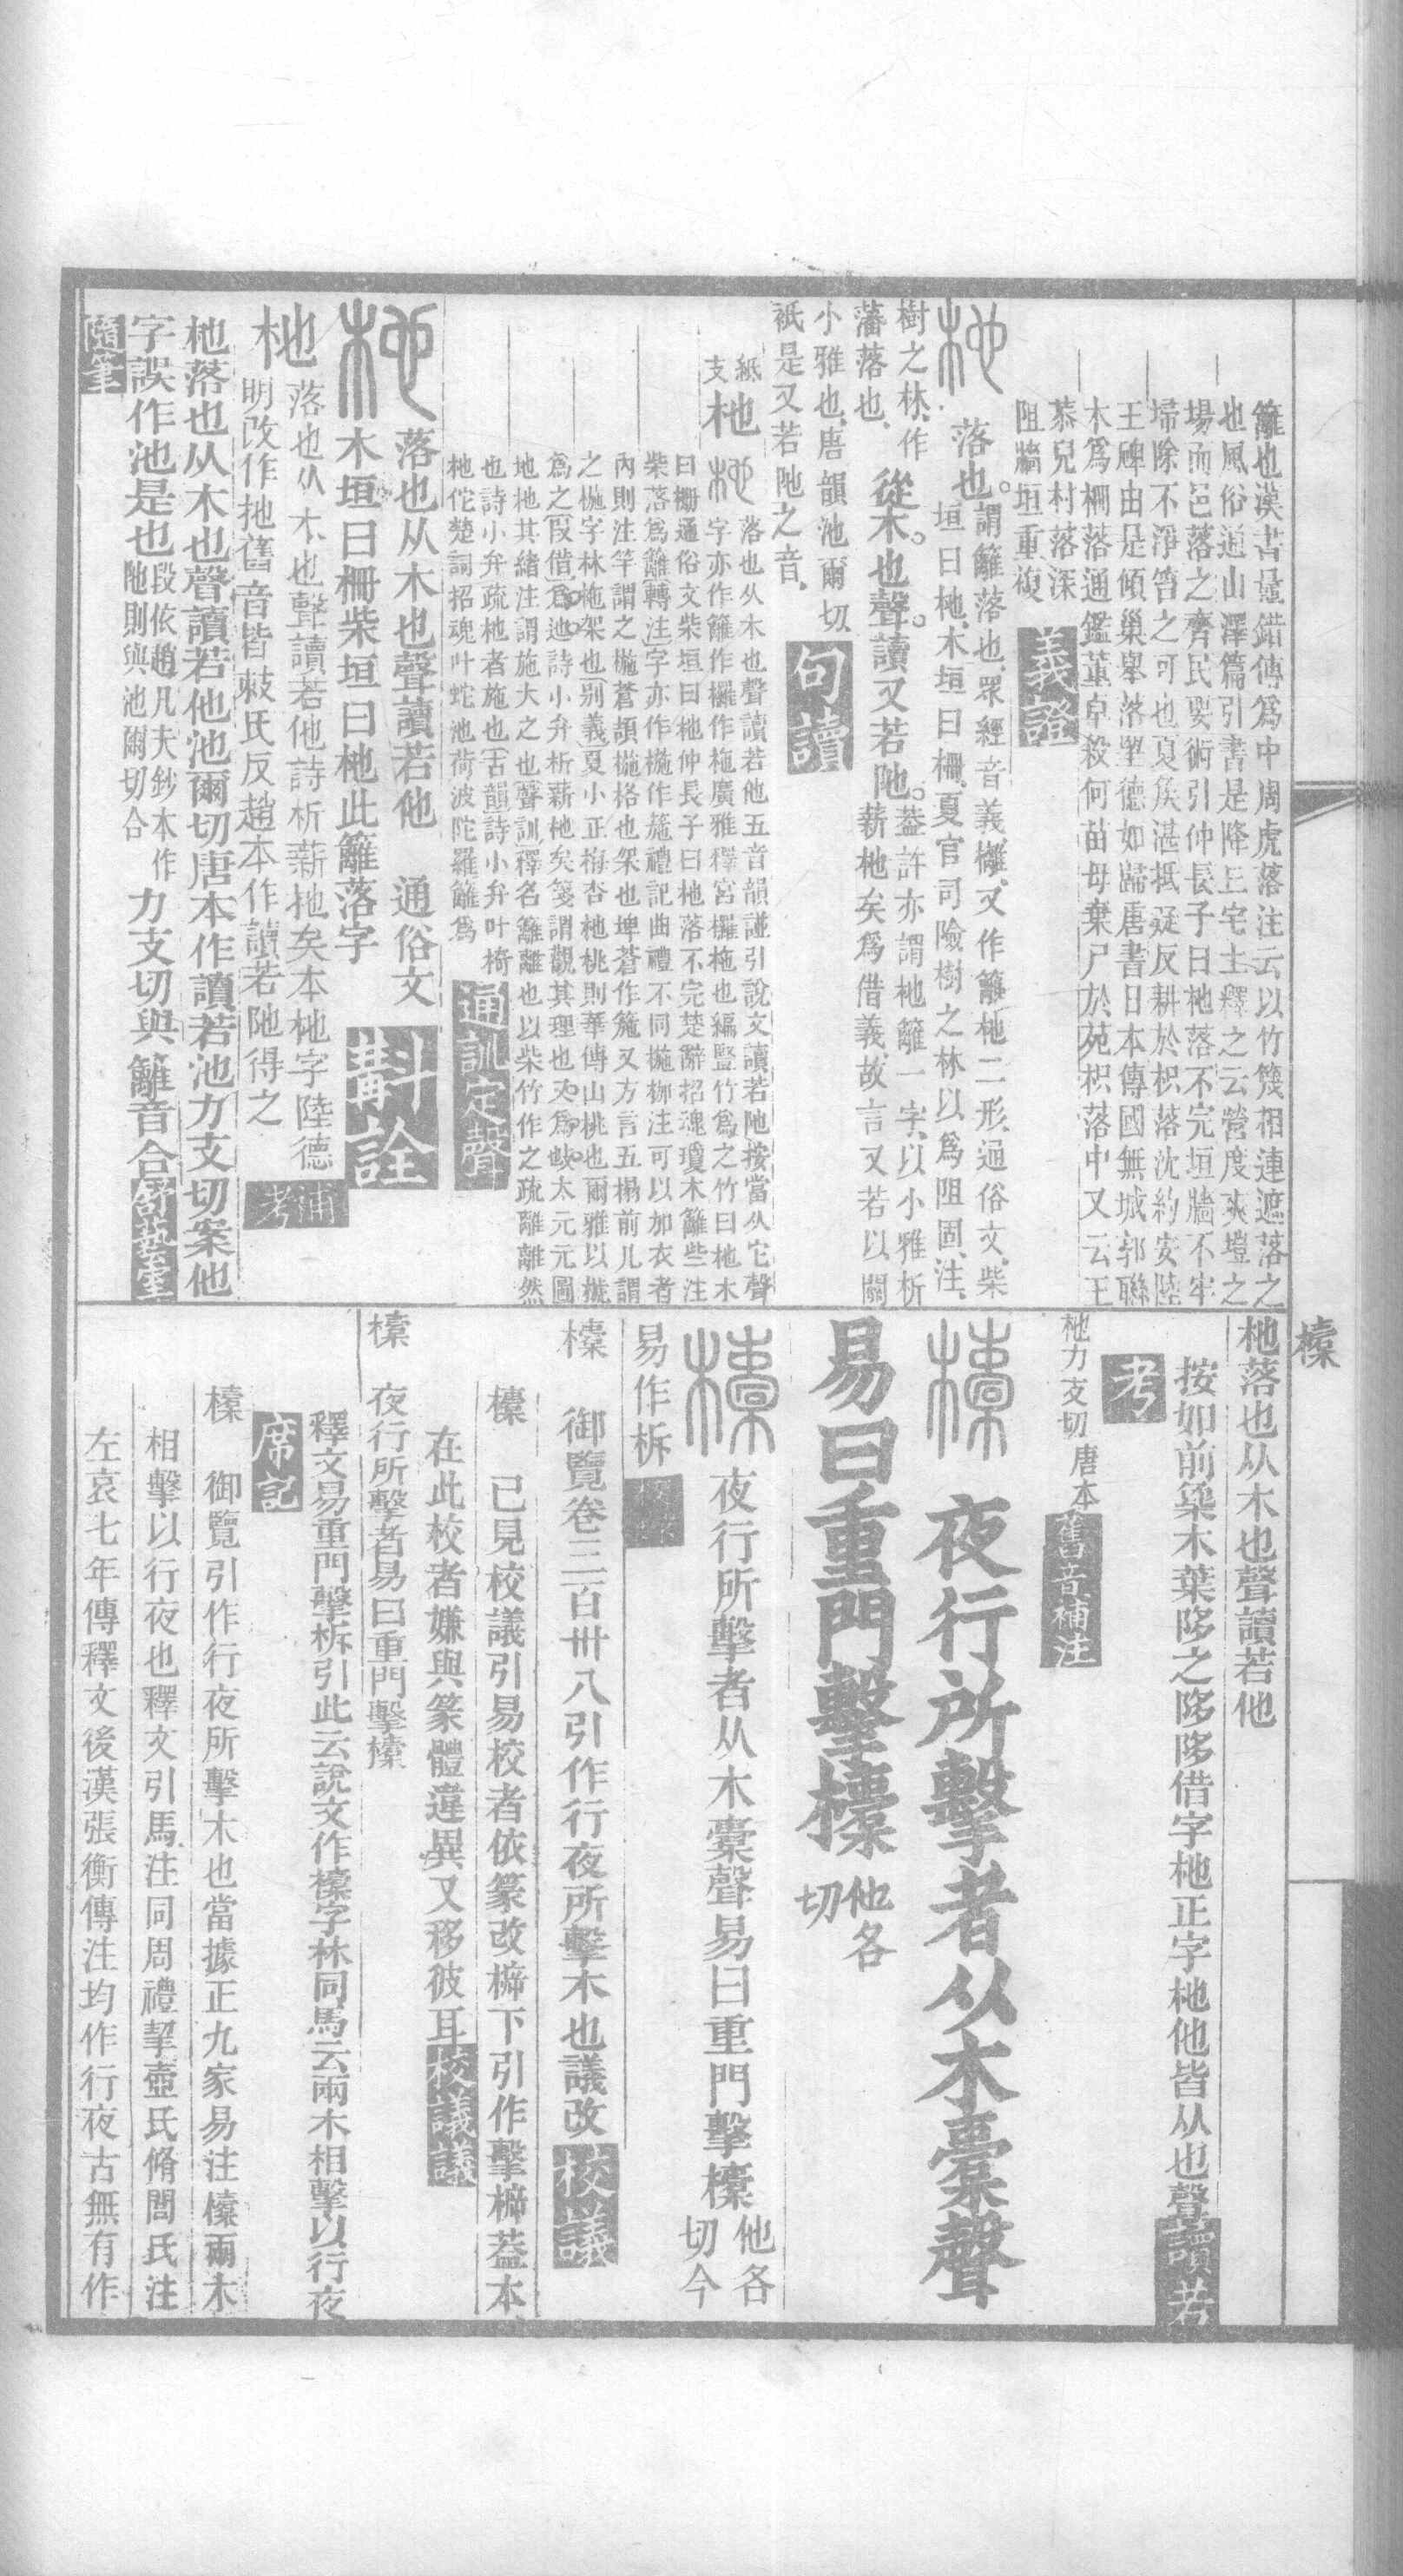 籬也漢書鼂錯傳爲中周虎落注云以竹篾相連遮落之
也風俗通山澤篇引書是降丘宅土釋之云營度爽塏之
場而邑落之齊民要術引仲長子曰杝落不完垣牆不牢
埽除不淨笞之可也夏矦湛抵疑反耕於枳落沈約安陸
王碑由是傾巢舉落望德如歸唐書日本傳國無城郭聯
木爲柵落通鑑董卓殺何苗母棄尸於苑枳落中又云王
恭兒村落深
阻牆垣重複 義證
杝 落也。謂籬落也、眾經音義、欏、又作籬杝二形、通俗文、柴
垣曰杝、木垣曰柵、夏官司險樹之林以爲阻固、注、
樹之林、作
藩落也、 從木也聲。讀又若阤。蓋許亦謂杝籬一字、以小雅析
薪杝矣爲借義、故言又若以關
小雅也、唐韻池爾切
衹是又若阤之音、 句讀
紙
支 杝 杝 落也从木也聲讀若他五音韻譜引說文讀若阤按當从它聲
字亦作籬作欏作柂廣雅釋宮欏柂也編豎竹爲之竹曰杝木
曰柵通俗文柴垣曰杝仲長子曰杝落不完楚辭招魂瓊木籬些注
柴落爲籬轉注字亦作椸作箷禮記曲禮不同椸枷注可以加衣者
內則注竿謂之椸蒼頡椸格也架也埤蒼作箷又方言五榻前几謂
之椸字林柂架也別義夏小正梅杏杝桃則華傳山桃也爾雅以榹
爲之叚借爲迆詩小弁析薪杝矣箋謂觀其理也又爲㱿太元元圖
地杝其緒注謂施大之也聲訓釋名籬離也以柴竹作之疏離離然
也詩小弁疏杝者施也古韻詩小弁叶椅
杝佗楚詞招魂叶蛇池荷波陀羅籬爲 通訓定聲
杝 落也从木也聲讀若他 通俗文
木垣曰柵柴垣曰杝此籬落字 斠詮
杝 落也从木也聲讀若他詩析薪杝矣本杝字陸德
明改作扡舊音皆敕氏反趙本作讀若阤得之 補考
杝落也从木也聲讀若他池爾切唐本作讀若池力支切案他
字誤作池是也段依趙凡夫鈔本作
阤則與池爾切合 力支切與籬音合 舒藝室
隨筆
杝落也从木也聲讀若他
按如前染木葉陊之陊陊借字杝正字杝他皆从也聲 讀若
考
杝力支切 唐本 舊音補注
欜 夜行所擊者从木橐聲
易曰重門擊欜 他各切
欜 夜行所擊者从木橐聲易曰重門擊欜他各切今
易作柝
欜 御覽卷三百卅八引作行夜所擊木也議改 校議
欜 已見校議引易校者依篆改㯕下引作擊㯕蓋本
在此校者嫌與篆體違異又移彼耳 校議議
欜 夜行所擊者易曰重門擊欜
釋文易重門擊柝引此云說文作欜字林同馬云兩木相擊以行夜
席記
欜 御覽引作行夜所擊木也當據正九家易注欜兩木
相擊以行夜也釋文引馬注同周禮挈壺氏脩閭氏注
左哀七年傳釋文後漢張衡傳注均作行夜古無有作
欜